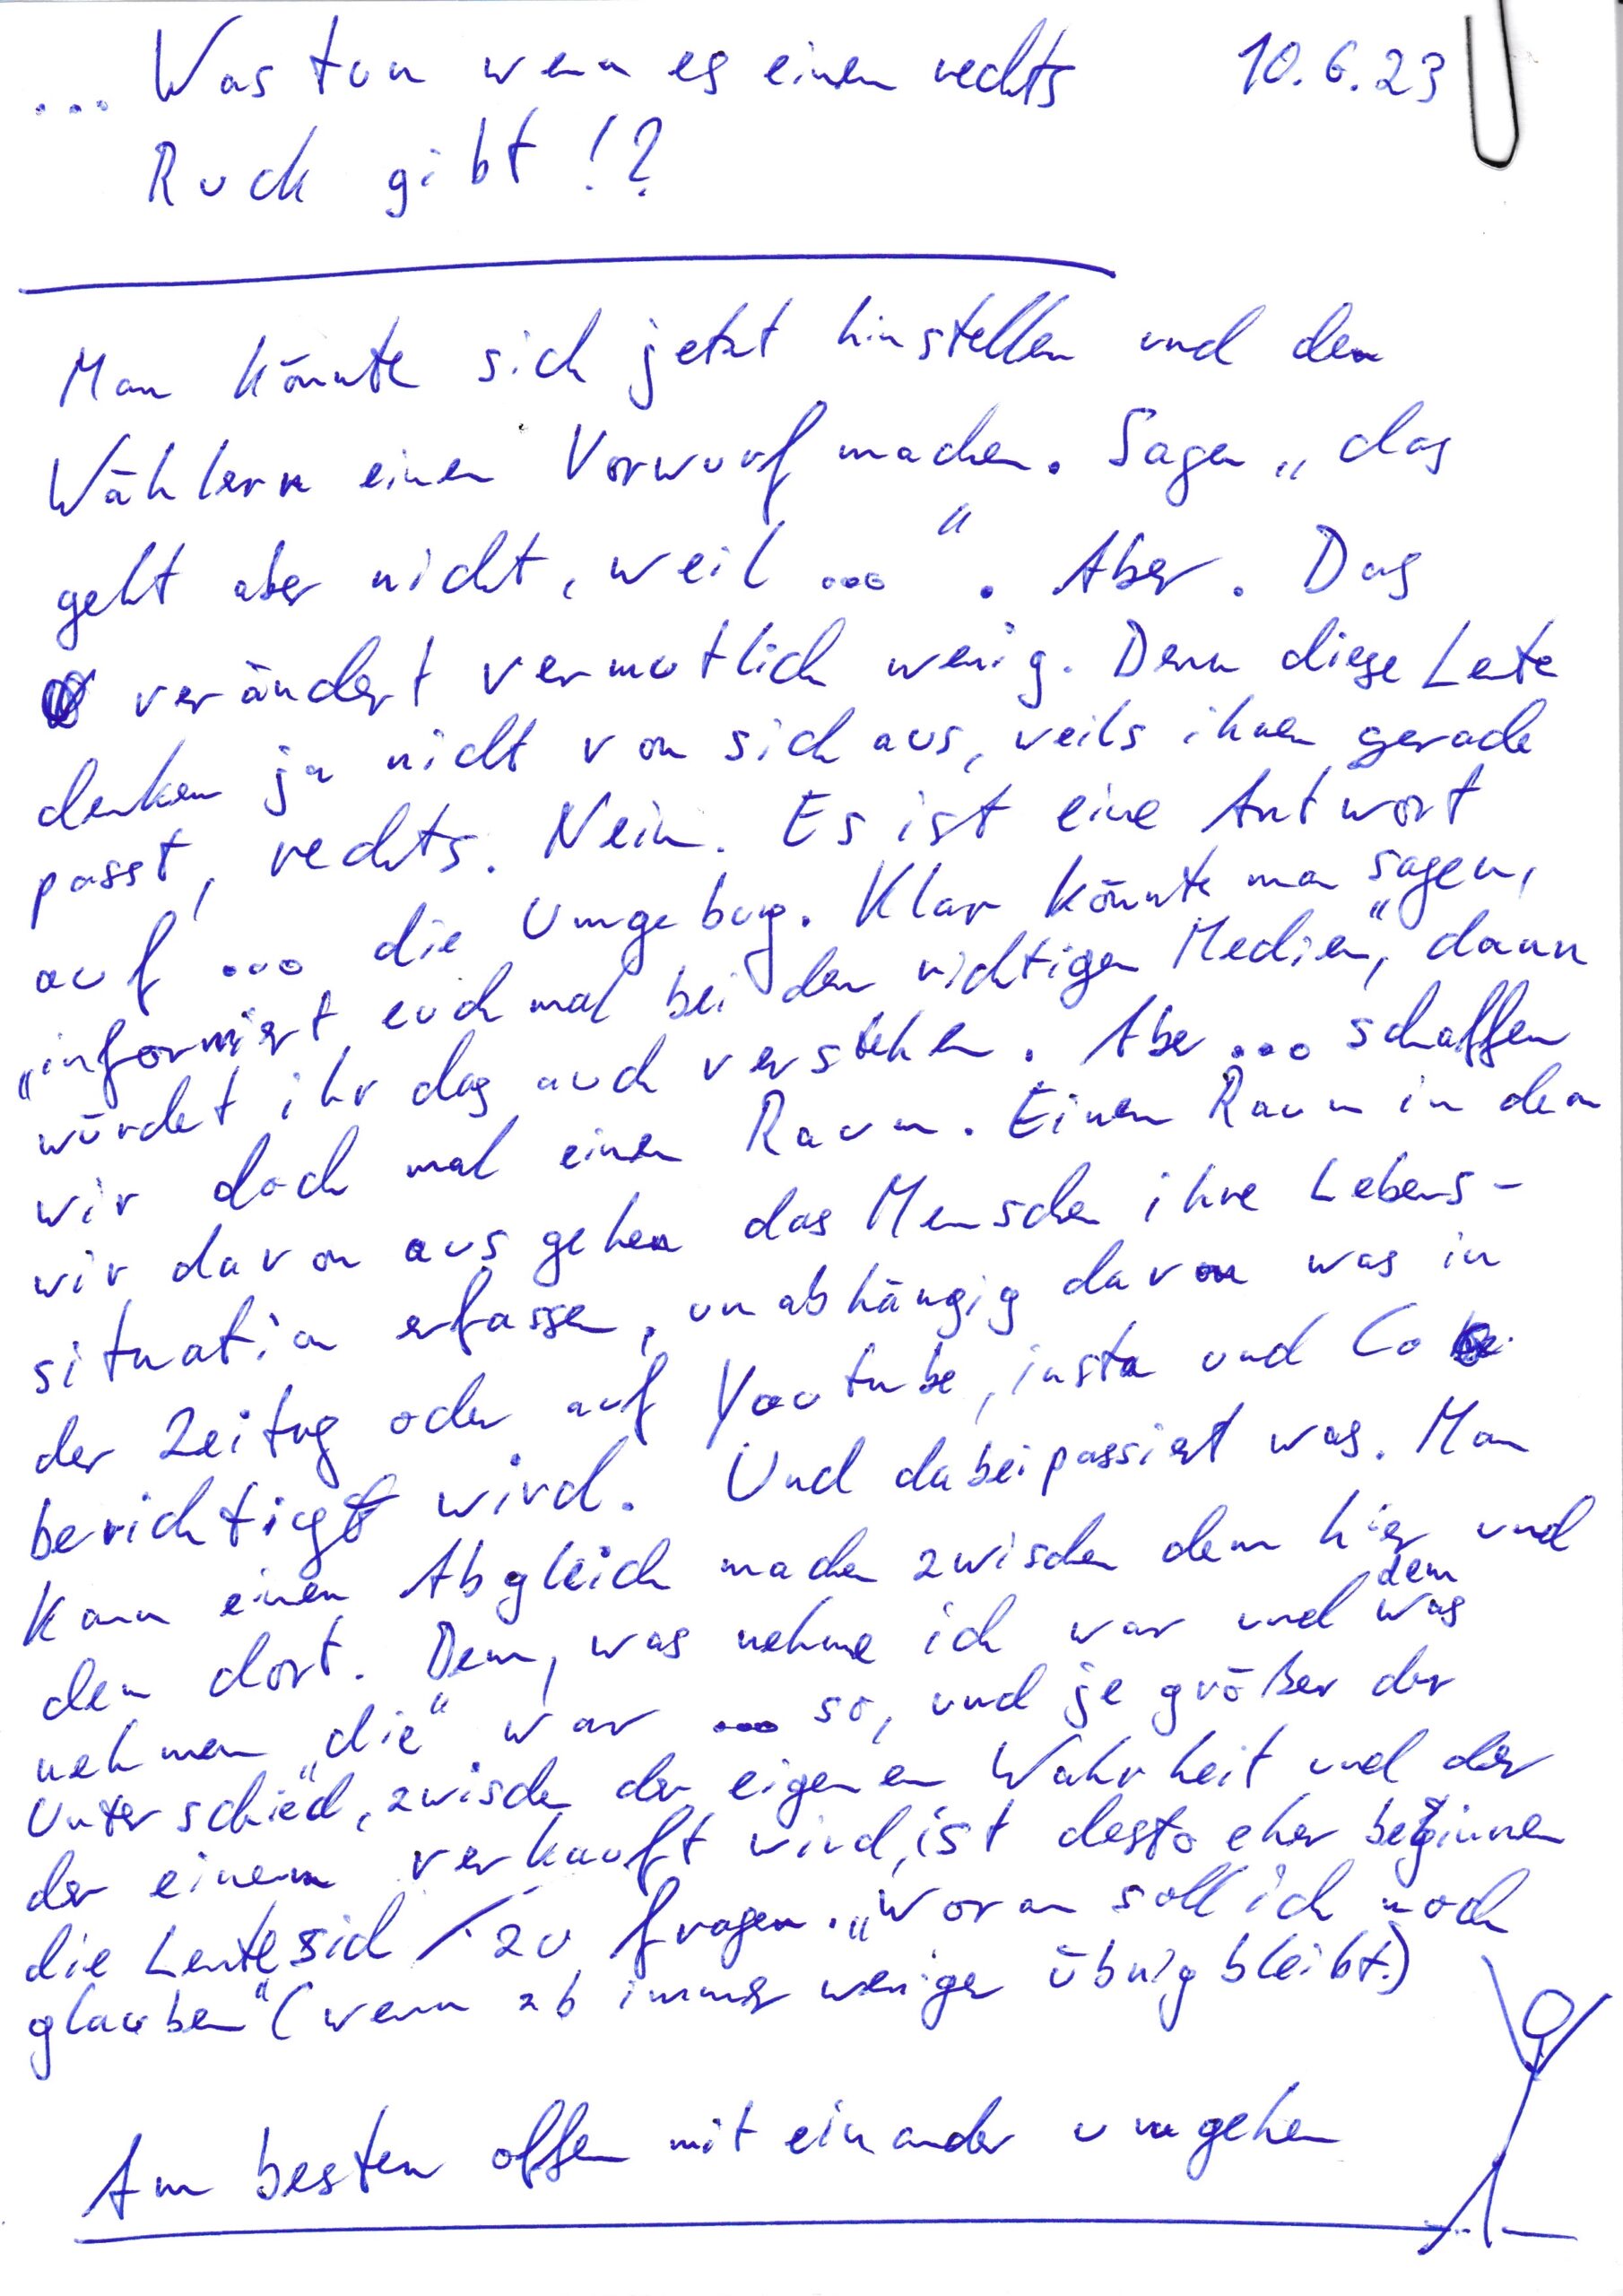 ... Was tun wenn es einen rechts 10.6.23
Ruck gibt !?
Man könnte sich jetzt hinstellen und den
Wählern einen Vorwurf machen. Sagen „das
geht aber nicht, weil ...“. Aber. Das
verändert vermutlich wenig. Denn diese Leute
denken ja nicht von sich aus, weils ihnen gerade
passt, rechts. Nein. Es ist eine Antwort
auf ... die Umgebung. Klar könnte man sagen,
„informiert euch mal bei den richtigen Medien“, dann
würdet ihr das auch verstehen. Aber ... schaffen
wir doch mal einen Raum. Einen Raum in dem
wir davon aus gehen das Menschen ihre Lebens-
situation erfassen, unabhängig davon was in
der Zeitung oder auf Youtube, insta und Co
berichtigt wird. Und dabei passiert was. Man
kann einen Abgleich machen zwischen dem hier und
dem dort. Dem, was nehme ich war und dem was
nehmen „die“ war ... so, und je größer der
Unterschied, zwischen der eigenen Wahrheit und der
der einem verkauft wird, ist desto eher beginnen
die Leute sich zu fragen. „Woran soll ich noch
glauben“ (wenn ab immer weniger übrig bleibt.)
Am besten offen mit einander umgehen